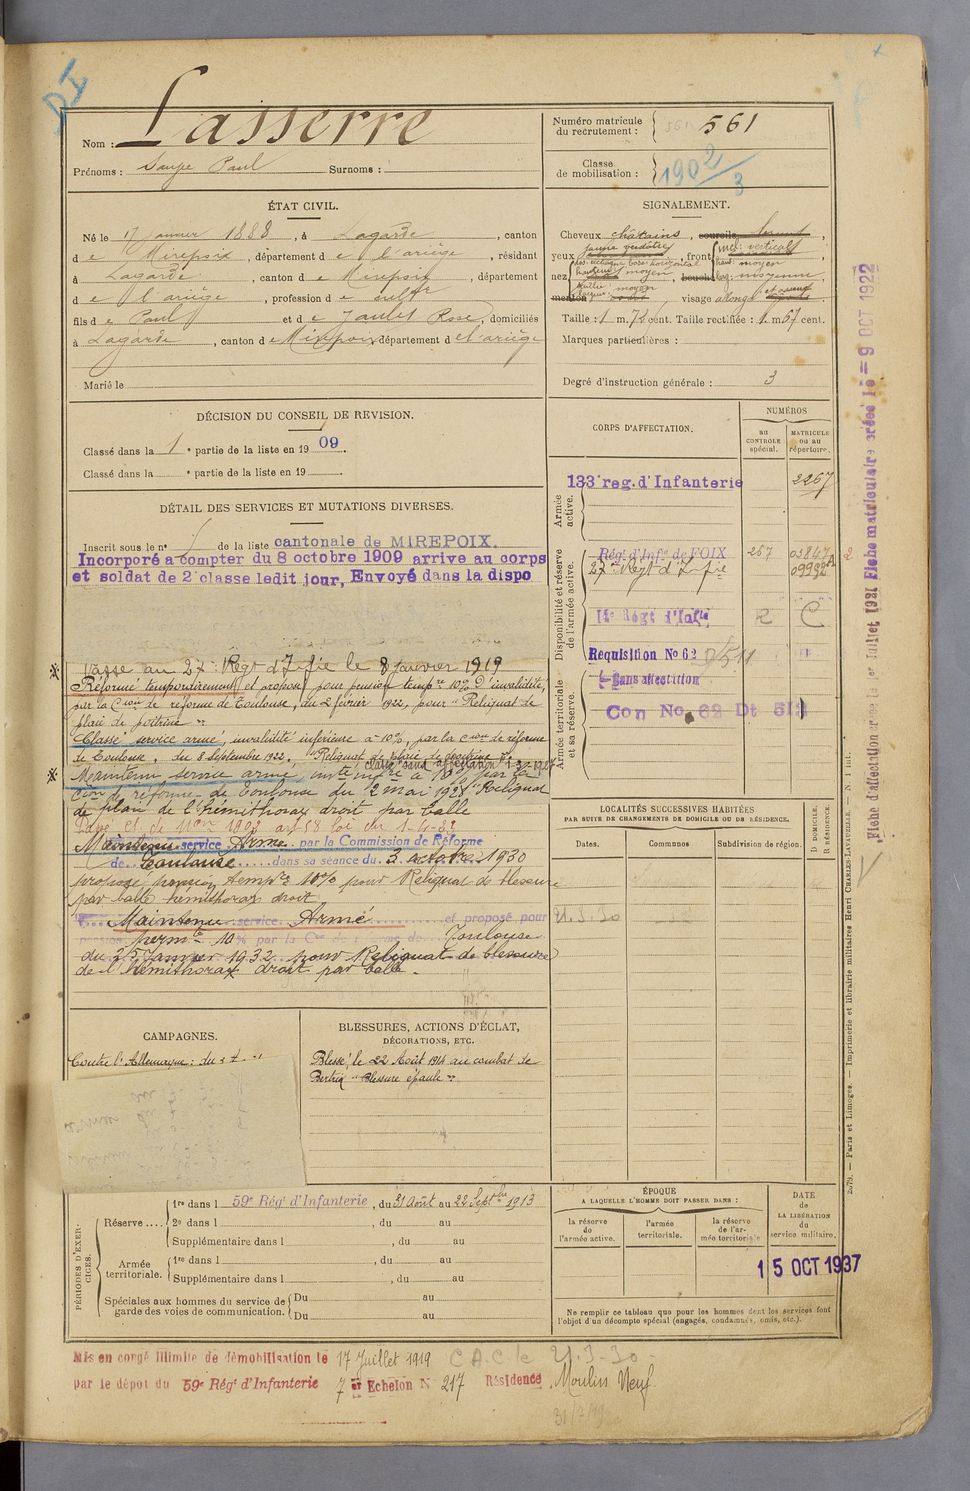 DI
Lasserre
Nom :
Prénoms : Paul Surnoms :
ÉTAT CIVIL.
Né le 17 janvier 1888, à Lagarde, canton
de Mirepoix, département de l'ariège, résidant
à Lagarde, canton de Mirepoix, département
de l'ariège, profession de cultr
fils de Paul et de Rose, domiciliés
à Lagarde, canton de Mirepoix département de l'ariège
Marié le
DÉCISION DU CONSEIL DE REVISION.
Classé dans la 1e partie de la liste en 1909.
Classé dans la e partie de la liste en 19 .
DÉTAIL DES SERVICES ET MUTATIONS DIVERSES.
Inscrit sous le n° de la liste cantonale de MIREPOIX.
Incorporé a compter du 8 octobre 1909 arrive au corps
et soldat de 2e classe ledit jour, Envoyé dans la dispo
Passé au 27e Régt d'Ifie le 8 janvier 1919
Réformé temporairement et proposé pour pension tempre 10% d'invalidité,
par la Cion de réforme de Toulouse, du 2 février 1922, pour "Reliquat de
plaie de poitrine"
Classé service armé, invalidité inférieure à 10%, par la Cion de réforme
de Toulouse, du 8 septembre 1922. "Reliquat de plaie de poitrine"
classé sans affectation
Maintenu service armé, par la
Cion de réforme de Toulouse du 2 mai 1928 "Reliquat
de plaie de l'hémithorax droit par balle
Maintenu service Armé par la Commission de Réforme
de Toulouse dans sa séance du 3 octobre 1930
proposé pension tempre 10% pour Reliquat de blessure
par balle hémithorax droit
Maintenu service Armé et proposé pour
pension permte 10% par la Con de réforme de Toulouse
du 25 Janvier 1932 pour Reliquat de blessure
de l'hémithorax droit par balle.
CAMPAGNES.
Contre l'Allemagne : du
BLESSURES, ACTIONS D'ÉCLAT,
DÉCORATIONS, ETC.
Blessé, le 22 Août 1914 au combat de
Bertrix "Blessure épaule"
PÉRIODES D'EXERCICES.
Réserve .... 1re dans l 59e Régt d'Infanterie, du 31 Août au 22 Septbre 1913
2e dans l , du au
Supplémentaire dans l , du au
Armée territoriale. 1re dans l , du au
Supplémentaire dans l , du au
Spéciales aux hommes du service de garde des voies de communication. Du au
Du au
Mis en congé illimité de démobilisation le 17 Juillet 1919
par le dépôt du 59e Régt d'Infanterie 7 er Echelon N° 217 Résidence Moulin Neuf.
C.A.C. le 21.3.30
Numéro matricule du recrutement : 561
Classe de mobilisation : 1902/3
SIGNALEMENT.
Cheveux châtains, sourcils bruns,
yeux jaune verdâtre, front incl: vertical
haut: moyen
larg: moyenne
nez dos: rectiligne base: horizontal
hauteur moyen bouche
saillie: moyen
largeur:
menton visage allongé
Taille : 1 m. 72 cent. Taille rectifiée : 1 m 67 cent.
Marques particulières :
Degré d'instruction générale : 3
CORPS D'AFFECTATION.
NUMÉROS
au CONTROLE spécial.
MATRICULE ou au répertoire.
Armée active.
133e reg. d'Infanterie 2267
Disponibilité et réserve de l'armée active.
Régt d'Infie de FOIX 267
27e Régt d'Ifie
Régt d'Infie
Requisition No 62
Armée territoriale et sa réserve.
Sans affectation
Con No 62 Dt 512
LOCALITÉS SUCCESSIVES HABITÉES
PAR SUITE DE CHANGEMENTS DE DOMICILE OU DE RÉSIDENCE.
Dates. Communes Subdivision de région. D DOMICILE. R RÉSIDENCE.
21.3.30
ÉPOQUE
A LAQUELLE L'HOMME DOIT PASSER DANS :
la réserve de l'armée active.
l'armée territoriale.
la réserve de l'armée territoriale
DATE de LA LIBÉRATION du service militaire.
15 OCT 1937
Ne remplir ce tableau que pour les hommes dont les services font
l'objet d'un décompte spécial (engagés, condamnés, omis, etc.).
Paris et Limoges. — Imprimerie et librairie militaires Henri CHARLES-LAVAUZELLE. — N. 1 int.
Fiche d'affectation créée le 1er Juillet 1921 Fiche matriculaire créée le = 9 OCT 1922